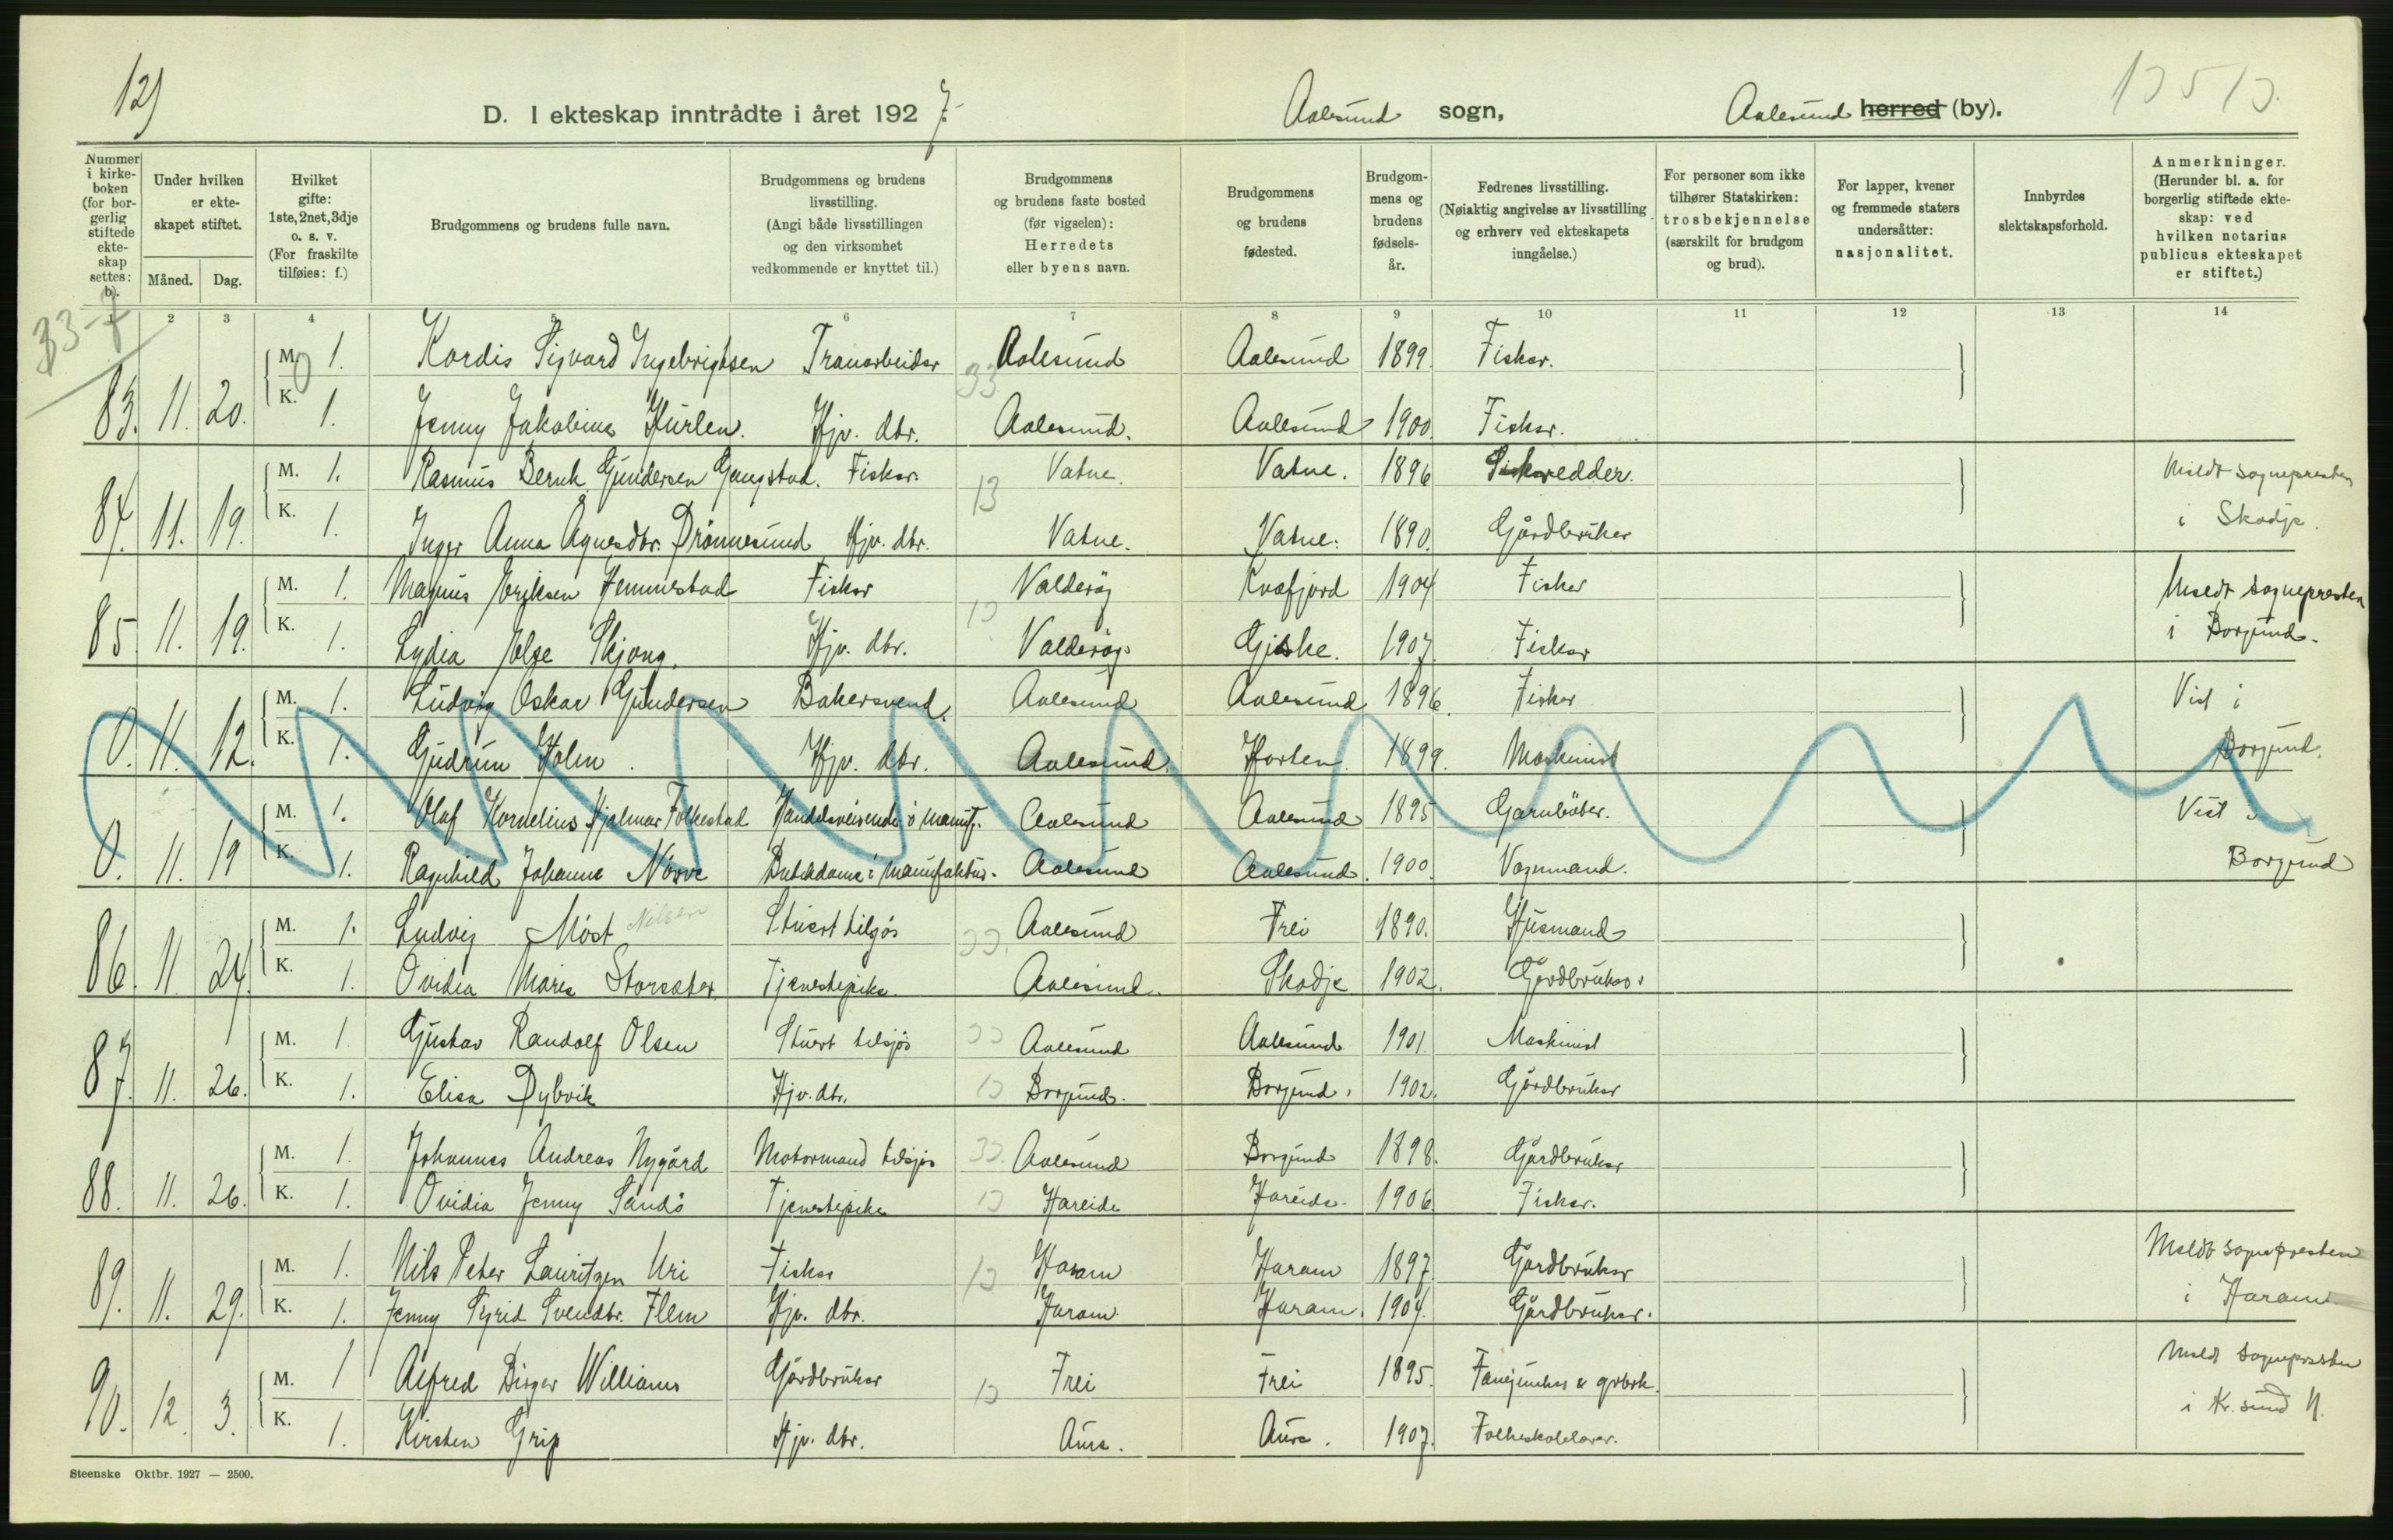 12)
D. I ekteskap inntrådte i året 1927. Aalesund sogn, Aalesund herred (by).
Nummer i kirkeboken (for borgerlig stiftede ekteskap settes: b).
Under hvilken er ekteskapet stiftet.
Måned. Dag.
Hvilket gifte: 1ste, 2net, 3dje o. s. v. (For fraskilte tilføies: f.)
Brudgommens og brudens fulle navn.
Brudgommens og brudens livsstilling. (Angi både livsstillingen og den virksomhet vedkommende er knyttet til.)
Brudgommens og brudens faste bosted (før vigselen): Herredets eller byens navn.
Brudgommens og brudens fødested.
Brudgommens og brudens fødselsår.
Fedrenes livsstilling. (Nøiaktig angivelse av livsstilling og erhverv ved ekteskapets inngåelse.)
For personer som ikke tilhører Statskirken: trosbekjennelse (særskilt for brudgom og brud).
For lapper, kvener og fremmede staters undersåtter: nasjonalitet.
Innbyrdes slektskapsforhold.
Anmerkninger. (Herunder bl. a. for borgerlig stiftede ekteskap: ved hvilken notarius publicus ekteskapet er stiftet.)
1 2 3 4 5 6 7 8 9 10 11 12 13 14
33-7
M. 1. Kordis Sigvard Ingebrigtsen Tranarbeider 33 Aalesund Aalesund 1899. Fisker.
83. 11. 20. K. 1. Jenny Jakobine Hurlen. Hjv. dtr. Aalesund. Aalesund 1900. Fisker.
M. 1. Rasmus Bernh. Gundersen Gangstad. Fisker. 13 Vatne. Vatne. 1896 Fiskeredder. Meldt sognepresten
84. 11. 19. K. 1. Inger Anna Agnesdtr. Drønnesund Hjv. dtr. Vatne. Vatne. 1890. Gårdbruker i Skodje.
M. 1. Magnus Eriksen Hemmestad Fisker 13 Valderøy Kvæfjord 1904 Fisker Meldt sognepresten
85. 11. 19. K. 1. Lydia Else Skjong. Hjv. dtr. Valderøy Giske. 1907. Fisker i Borgund.
M. 1. Ludvig Oskar Gundersen Bakersvend. Aalesund Aalesund 1896. Fisker Viet i
0. 11. 12. K. 1. Gudrun Holm. Hjv. dtr. Aalesund. Horten. 1899. Maskinist Borgund.
M. 1. Olaf Kornelius Hjalmar Folkestad Handelsreisende i manuf. Aalesund Aalesund 1895 Garnbøter. Viet i
0. 11. 19 K. 1. Ragnhild Johanne Nörve Butikdame i manufaktur. Aalesund Aalesund. 1900. Vognmand. Borgund
M. 1. Ludvig Möst Nilsen Stuert tilsjös 33. Aalesund Frei 1890. Husmand
86. 11. 24. K. 1. Ovidia Marie Storsæter. Tjenestepike. Aalesund. Skodje 1902. Gårdbruker
M. 1. Gustav Randolf Olsen Stuert tilsjös 33 Aalesund Aalesund 1901. Maskinist
87. 11. 26. K. 1. Elisa Dybvik Hjv. dtr. 13 Borgund. Borgund. 1902. Gårdbruker
M. 1. Johannes Andreas Nygård Motormand tilsjös 33. Aalesund Borgund 1898. Gårdbruker
88. 11. 26. K. 1. Ovidia Jenny Sandö Tjenestepike 13 Hareide Hareide. 1906. Fisker.
M. 1. Nils Peter Lauritzen Uri Fisker 13 Haram Haram 1897. Gårdbruker Meldt sognepresten
89. 11. 29. K. 1. Jenny Sigrid Svendtr. Flem Hjv. dtr. Haram Haram. 1904. Gårdbruker. i Haram
M. 1 Alfred Birger Williams Gårdbruker 13 Frei Frei 1895. Fanejunker & grbrk. Meldt sognepresten
90. 12. 3. K. 1. Kirsten Grip Hjv. dtr. Aure. Aure. 1907. Folkeskolelærer. i Kr. sund N.
Steenske Oktbr. 1927 — 2500.